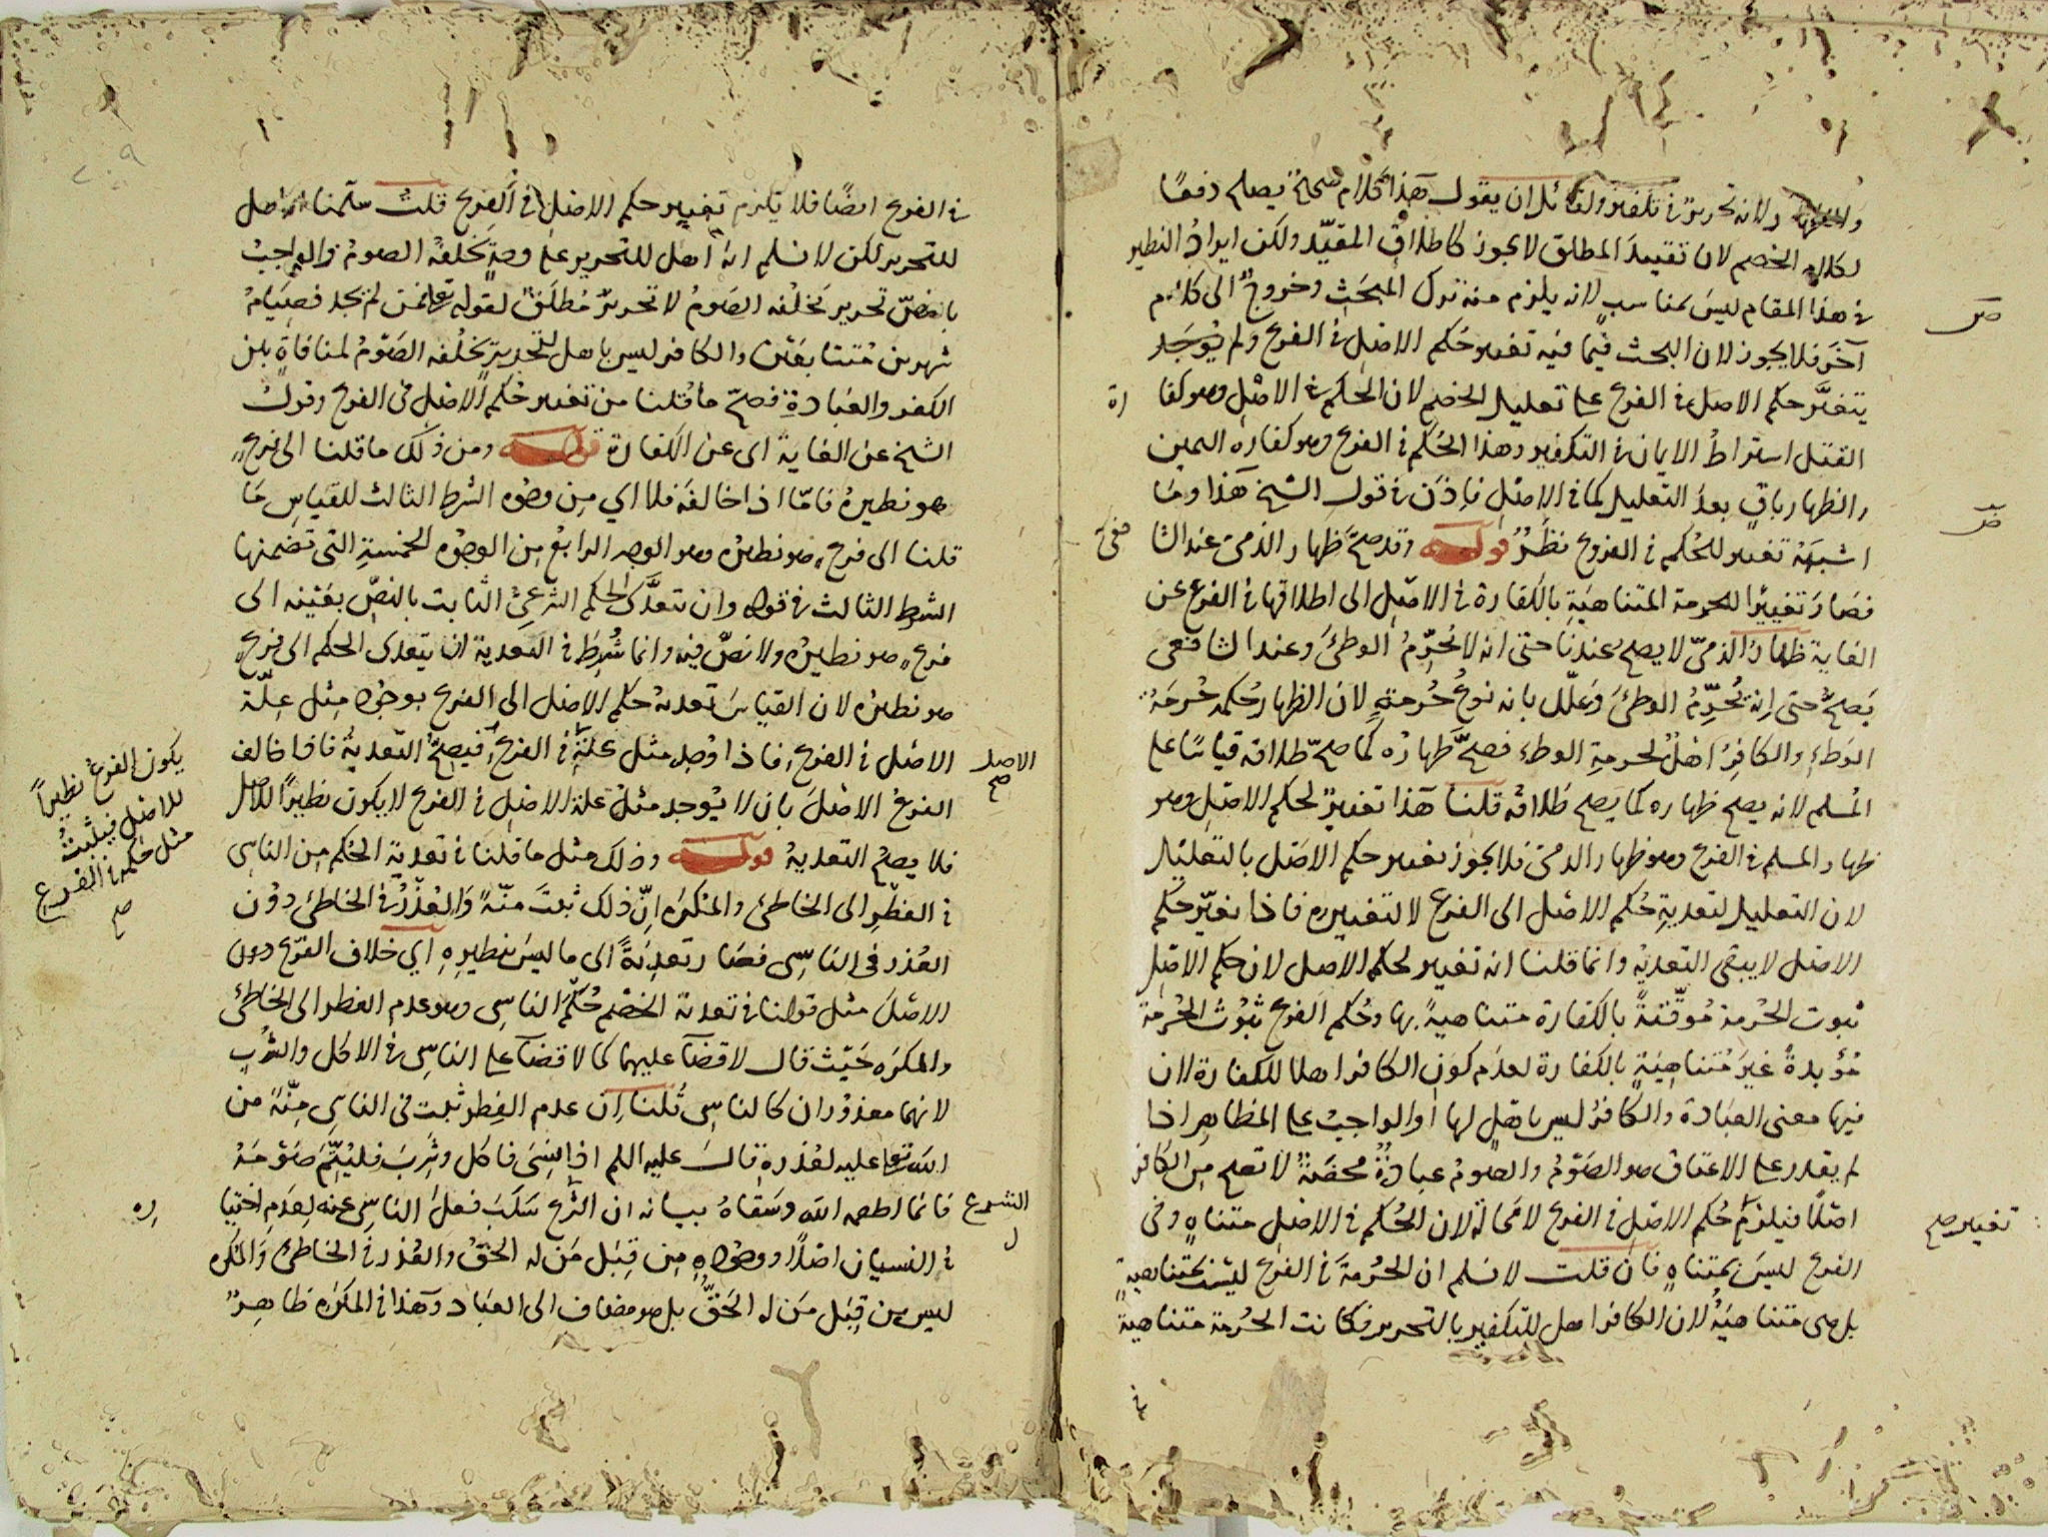 لانه تحرير في تكفير ولقائل ان يقول هذا كلام يصلح دفعًا
لكلام الخصم لان تقييد المطلق لا يجوز كاطلاق المقيّد ولكن ايراد النظير
في هذا المقام ليس بمناسب لانه يلزم منه ترك المبحث وخروج الى كلام
آخر فلا يجوز لان البحث فيما فيه تغيير حكم الاصل في الفرع ولم يوجد
يتغيّر حكم الاصل في الفرع على تعليل الخصم لان الحكم في الاصل وهو كفا
رة
القتل اشتراط الايمان في التكفير وهذا الحكم في الفرع وهو كفارة اليمين
والظهار باق بعد التعليل كما في الاصل فاذن في قول الشيخ هذا وما
اشبهه تغيير للحكم في الفروع نظر قوله وقد صح ظهار الذمي عند الشا
فعي
فصار تغييرا للحرمة المتناهية بالكفارة في الاصل الى اطلاقها في الفرع عن
الغاية ظهار الذمي لا يصح عندنا حتى انه لا يحرّم الوطئ وعند الشافعي
يصح حتى انه يحرّم الوطئ وعلّل بانه نوع حرمة لان الظهار حكمه حرمة
الوطء والكافر اهل لحرمة الوطء فصح ظهاره كما صح طلاقه قياسًا على
المسلم لانه يصح ظهاره كما يصح طلاقه قلنا هذا تغيير لحكم الاصل وهو
ظهار المسلم في الفرع وهو ظهار الذمي فلا يجوز تغيير حكم الاصل بالتعليل
لان التعليل لتعدية حكم الاصل الى الفرع لا لتغييره فاذا تغيّر حكم
الاصل لا يبقى التعدية وانما قلنا انه تغيير لحكم الاصل لان حكم الاصل
ثبوت الحرمة موقّتة بالكفارة متناهية بها وحكم الفرع ثبوت الحرمة
مؤبدة غير متناهية بالكفارة لعدم كون الكافر اهلا للكفارة لان
فيها معنى العبادة والكافر ليس باهل لها او الواجب على المظاهر اذا
لم يقدر على الاعتاق هو الصوم والصوم عبادة محضة لا تصح من الكافر
اصلًا فيلزم حكم الاصل في الفرع لا محالة لان الحكم في الاصل متناه وفي
تغيير صح
الفرع ليس بمتناه فان قلت لا نسلم ان الحرمة في الفرع ليست بمتناهية
بل هي متناهية لان الكافر اهل للتكفير بالتحرير فكانت الحرمة متناهية
في الفرع ايضًا فلا يلزم تغيير حكم الاصل في الفرع قلت سلّمنا انه اهل
للتحرير لكن لا نسلم انه اهل للتحرير على وجه يخلفه الصوم والواجب
بالنصّ تحرير يخلفه الصوم لا تحرير مطلق لقوله تعالى فمن لم يجد فصيام
شهرين متتابعين والكافر ليس باهل لتحرير يخلفه الصوم لمنافاة بين
الكفر والعبادة فصحّ ما قلنا من تغيير حكم الاصل في الفرع وقول
الشيخ عن الغاية اى عن الكفارة قوله ومن ذلك ما قلنا الى فرع
هو نظيره فامّا اذا خالفه فلا اي من وجوه الشرط الثالث للقياس ما
قلنا الى فرع هو نظيره وهو الوجه الرابع من الوجوه الخمسة التي تضمنها
الشرط الثالث في قوله وان يتعدّى الحكم الشرعي الثابت بالنصّ بعينه الى
فرع هو نظيره ولا نصّ فيه وانما شرط في التعدية ان يتعدى الحكم الى فرع
هو نظيره لان القياس تعدية حكم الاصل الى الفرع بوجود مثل علّة
الاصل في الفرع فاذا وجد مثل علة في الفرع فيصح التعدية فاذا خالف
الاصل صح
يكون الفرع نظيرًا
للاصل فيثبت
مثل حكمه في الفرع
صح
الفرع الاصل بان لا يوجد مثل علة الاصل في الفرع لا يكون نظيرًا للاصل
فلا يصح التعدية قوله وذلك مثل ما قلنا في تعدية الحكم من الناسي
في الفطر الى الخاطئ والمكره انّ ذلك ثبت منّة والعذر في الخاطئ دون
العذر في الناسي فصار تعدية الى ما ليس بنظيره اي خلاف الفرع دون
الاصل مثل قولنا في تعدية الخصم حكم الناسي وهو عدم الفطر الى الخاطئ
والمكره حيث قال لا قضآ عليهما كما لا قضآ على الناسي في الاكل والشرب
لانهما معذوران كالناسي قلنا ان عدم الفطر ثبت في الناسي منّة من
الله تعا عليه لعذره قال عليه السلم اذا نسي فاكل وشرب فليتمّ صومه
فانما اطعمه الله وسقاه بيانه ان الشرع سلب فعل الناسي عنه لعدم اختيا
ره
الشرع
في النسيان اصلًا ووجوده من قبل من له الحق والعذر في الخاطئ والمكره
ليس من قبل من له الحقّ بل هو مضاف الى العباد وهذا في المكره ظاهر